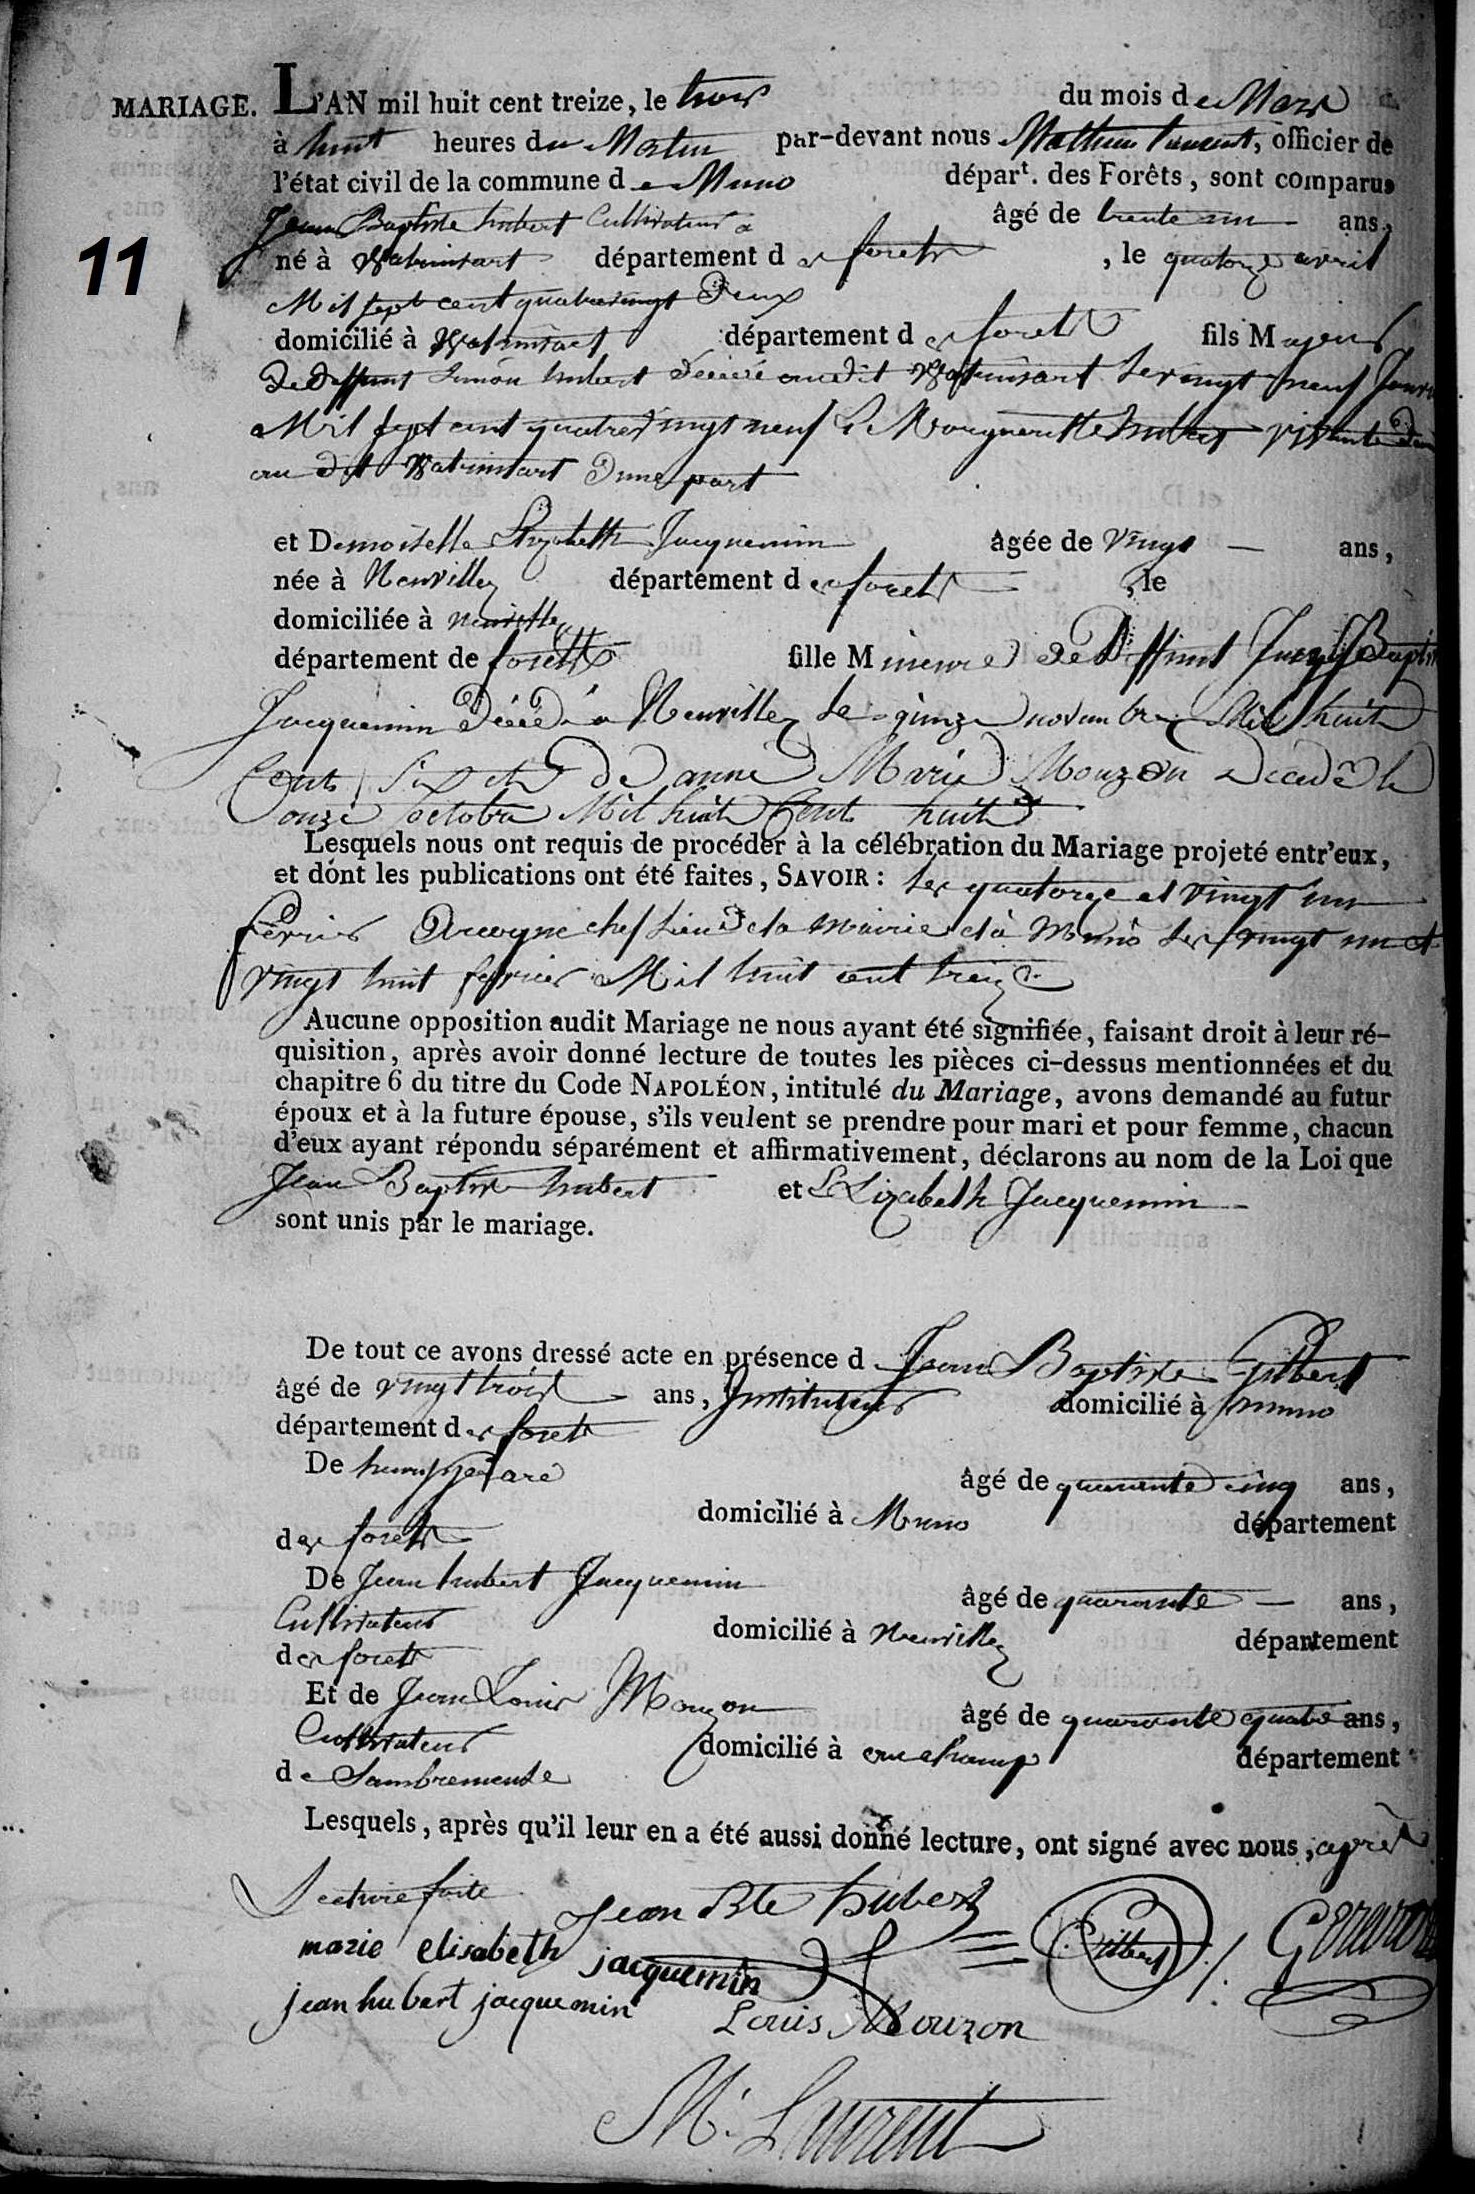 MARIAGE. L'AN mil huit cent treize, le trois du mois de Mars
à huit heures du Matin par-devant nous Mathieu Laurent, officier de
l'état civil de la commune de Muno départ. des Forêts, sont comparus
Jean Baptiste hubert Cultivateur âgé de trente un ans,
11
né à Watrinsart département des forets, le quatorze avril
Mil sept cent quatrevingt Deux
domicilié à Watrinsart département des forets fils Majeur
De Deffunt Simon hubert Décédé audit Watrinsart Le vingt neuf Janv
Mil sept cent quatrevingt neuf & Margueritte hubert vivante
au dit Watrinsart Dune part
et Demoiselle Elizabeth Jacquemin agée de vingt — ans,
née à Neuvillez département des forets, le
domiciliée à neuville
département de forets fille Mineure De Deffunt Baptis
Jacquemin Décédé à Neuvillez Le quinze novembre Mil huit
Cent Six et de anne Marie Mouzon Decedée le
onze octobre Mil huit Cent huit
Lesquels nous ont requis de procéder à la célébration du Mariage projeté entr'eux,
et dont les publications ont été faites, SAVOIR : Les quatorze et vingt un
fevrier chef Lieu de la mairie et à Muno Les vingt un et
vingt huit fevrier Mil huit cent treize
Aucune opposition audit Mariage ne nous ayant été signifiée, faisant droit à leur ré-
quisition, après avoir donné lecture de toutes les pièces ci-dessus mentionnées et du
chapitre 6 du titre du Code NAPOLÉON, intitulé du Mariage, avons demandé au futur
époux et à la future épouse, s'ils veulent se prendre pour mari et pour femme, chacun
d'eux ayant répondu séparément et affirmativement, déclarons au nom de la Loi que
Jean Baptiste hubert et Elizabeth Jacquemin
sont unis par le mariage.
De tout ce avons dressé acte en présence d Jean Baptiste Gilbert
âgé de vingt trois ans, Instituteur domicilié à muno
département des forets
De âgé de quarante cinq ans,
domicilié à Muno département
des forets
De Jean hubert Jacquemin âgé de quarante — ans,
Cultivateur domicilié à Neuvillez département
des forets
Et de Jean Louis Mouzon âgé de quarante quatre ans,
Cultivateur domicilié à département
de Sambremeuse
Lesquels, après qu'il leur en a été aussi donné lecture, ont signé avec nous, après
Lecture faite jean Bte hubert
Gilbert
marie elisabeth jacquemin
jean hubert jacquemin Louis Mouzon
M. Laurent